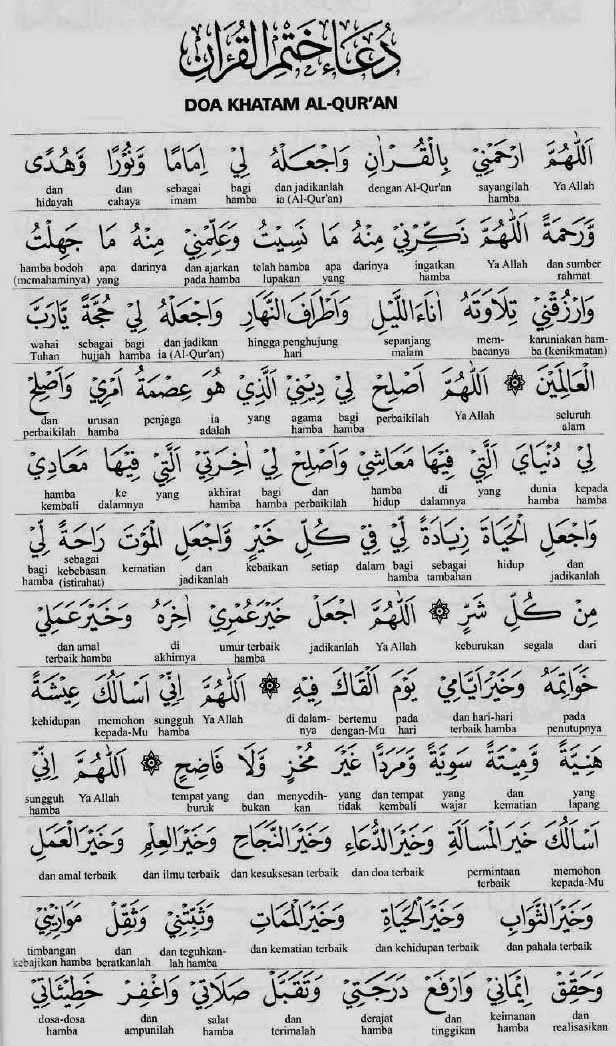 دُعَاءُ خَتْمِ الْقُرْاٰنِ
DOA KHATAM AL-QUR'AN
اَللّٰهُمَّ ارْحَمْنِيْ بِالْقُرْاٰنِ وَاجْعَلْهُ لِيْ اِمَامًا وَّنُوْرًا وَّهُدًى
dan dan sebagai bagi dan jadikanlah dengan Al-Qur'an sayangilah Ya Allah
hidayah cahaya imam hamba ia (Al-Qur'an) hamba
وَّرَحْمَةً اَللّٰهُمَّ ذَكِّرْنِيْ مِنْهُ مَا نَسِيْتُ وَعَلِّمْنِيْ مِنْهُ مَا جَهِلْتُ
hamba bodoh apa darinya dan ajarkan telah hamba apa darinya ingatkan Ya Allah dan sumber
(memahaminya) yang pada hamba lupakan yang hamba rahmat
وَارْزُقْنِيْ تِلَاوَتَهُ اٰنَاءَ اللَّيْلِ وَاَطْرَافَ النَّهَارِ وَاجْعَلْهُ لِيْ حُجَّةً يَّارَبَّ
wahai sebagai bagi dan jadikan hingga penghujung sepanjang mem- karuniakan ham-
Tuhan hujjah hamba ia (Al-Qur'an) hari malam bacanya ba (kenikmatan)
الْعَالَمِيْنَ ۞ اَللّٰهُمَّ اَصْلِحْ لِيْ دِيْنِيْ الَّذِيْ هُوَ عِصْمَةُ اَمْرِيْ وَاَصْلِحْ
dan urusan penjaga ia yang agama bagi perbaikilah Ya Allah seluruh
perbaikilah hamba adalah hamba hamba alam
لِيْ دُنْيَايَ الَّتِيْ فِيْهَا مَعَاشِيْ وَاَصْلِحْ لِيْ اٰخِرَتِيْ الَّتِيْ فِيْهَا مَعَادِيْ
hamba ke yang akhirat bagi dan hamba di yang dunia kepada
kembali dalamnya hamba hamba perbaikilah hidup dalamnya hamba hamba
وَاجْعَلِ الْحَيَاةَ زِيَادَةً لِّيْ فِيْ كُلِّ خَيْرٍ وَّاجْعَلِ الْمَوْتَ رَاحَةً لِّيْ
sebagai
bagi kebebasan kematian dan kebaikan setiap dalam bagi sebagai hidup dan
hamba (istirahat) jadikanlah hamba tambahan jadikanlah
مِنْ كُلِّ شَرٍّ ۞ اَللّٰهُمَّ اجْعَلْ خَيْرَ عُمْرِيْ اٰخِرَهُ وَخَيْرَ عَمَلِيْ
dan amal di umur terbaik jadikanlah Ya Allah keburukan segala dari
terbaik hamba akhirnya hamba
خَوَاتِمَهُ وَخَيْرَ اَيَّامِيْ يَوْمَ اَلْقَاكَ فِيْهِ ۞ اَللّٰهُمَّ اِنِّيْ اَسْأَلُكَ عِيْشَةً
kehidupan memohon sungguh Ya Allah di dalam- bertemu pada dan hari-hari pada
kepada-Mu hamba nya dengan-Mu hari terbaik hamba penutupnya
هَنِيَّةً وَّمِيْتَةً سَوِيَّةً وَّمَرَدًّا غَيْرَ مُخْزٍ وَّلَا فَاضِحٍ ۞ اَللّٰهُمَّ اِنِّيْ
sungguh Ya Allah tempat yang dan menyedih- yang dan tempat yang dan yang
hamba buruk bukan kan tidak kembali wajar kematian lapang
اَسْأَلُكَ خَيْرَ الْمَسْأَلَةِ وَخَيْرَ الدُّعَاءِ وَخَيْرَ النَّجَاحِ وَخَيْرَ الْعِلْمِ وَخَيْرَ الْعَمَلِ
dan amal terbaik dan ilmu terbaik dan kesuksesan terbaik dan doa terbaik permintaan memohon
terbaik kepada-Mu
وَخَيْرَ الثَّوَابِ وَخَيْرَ الْحَيَاةِ وَخَيْرَ الْمَمَاتِ وَثَبِّتْنِيْ وَثَقِّلْ مَوَازِيْنِيْ
timbangan dan dan teguhkan- dan kematian terbaik dan kehidupan terbaik dan pahala terbaik
kebajikan hamba beratkanlah lah hamba
وَحَقِّقْ اِيْمَانِيْ وَارْفَعْ دَرَجَتِيْ وَتَقَبَّلْ صَلَاتِيْ وَاغْفِرْ خَطِيْئَاتِيْ
dosa-dosa dan salat dan derajat dan keimanan dan
hamba ampunilah hamba terimalah hamba tinggikan hamba realisasikan